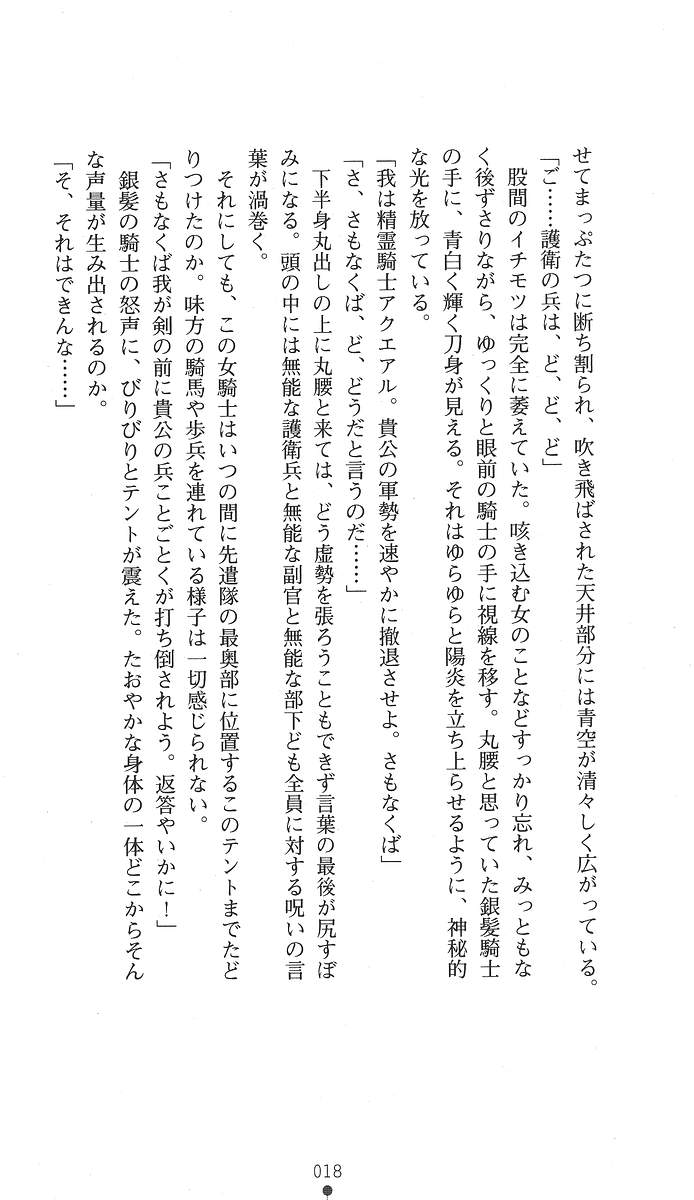 せてまっぷたつに断ち割られ、吹き飛ばされた天井部分には青空が清々しく広がっている。
「ご……護衛の兵は、ど、ど、ど」
股間のイチモツは完全に萎えていた。咳き込む女のことなどすっかり忘れ、みっともな
く後ずさりながら、ゆっくりと眼前の騎士の手に視線を移す。丸腰と思っていた銀髪騎士
の手に、青白く輝く刀身が見える。それはゆらゆらと陽炎を立ち上らせるように、神秘的
な光を放っている。
「我は精霊騎士アクエアル。貴公の軍勢を速やかに撤退させよ。さもなくば」
「さ、さもなくば、ど、どうだと言うのだ……」
下半身丸出しの上に丸腰と来ては、どう虚勢を張ろうこともできず言葉の最後が尻すぼ
みになる。頭の中には無能な護衛兵と無能な副官と無能な部下ども全員に対する呪いの言
葉が渦巻く。
それにしても、この女騎士はいつの間に先遣隊の最奥部に位置するこのテントまでたど
りつけたのか。味方の騎馬や歩兵を連れている様子は一切感じられない。
「さもなくば我が剣の前に貴公の兵ことごとくが打ち倒されよう。返答やいかに！」
銀髪の騎士の怒声に、びりびりとテントが震えた。たおやかな身体の一体どこからそん
な声量が生み出されるのか。
「そ、それはできんな……」
018